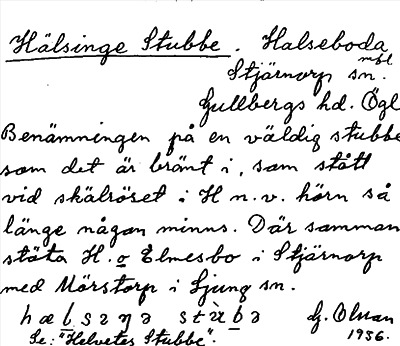 Hälsinge Stubbe. Halseboda
mbl
Stjärnorp sn.
Gullbergs hd. Ögl
Benämningen på en väldig stubbe
som det är bränt i, som stått
vid skälröset i H n.v. hörn så
länge någon minns. Där samman
stöta H. o Elmesbo i Stjärnorp
med Mörstorp i Ljung sn.
G. Olman
Se: "Helvetes Stubbe". 1936.